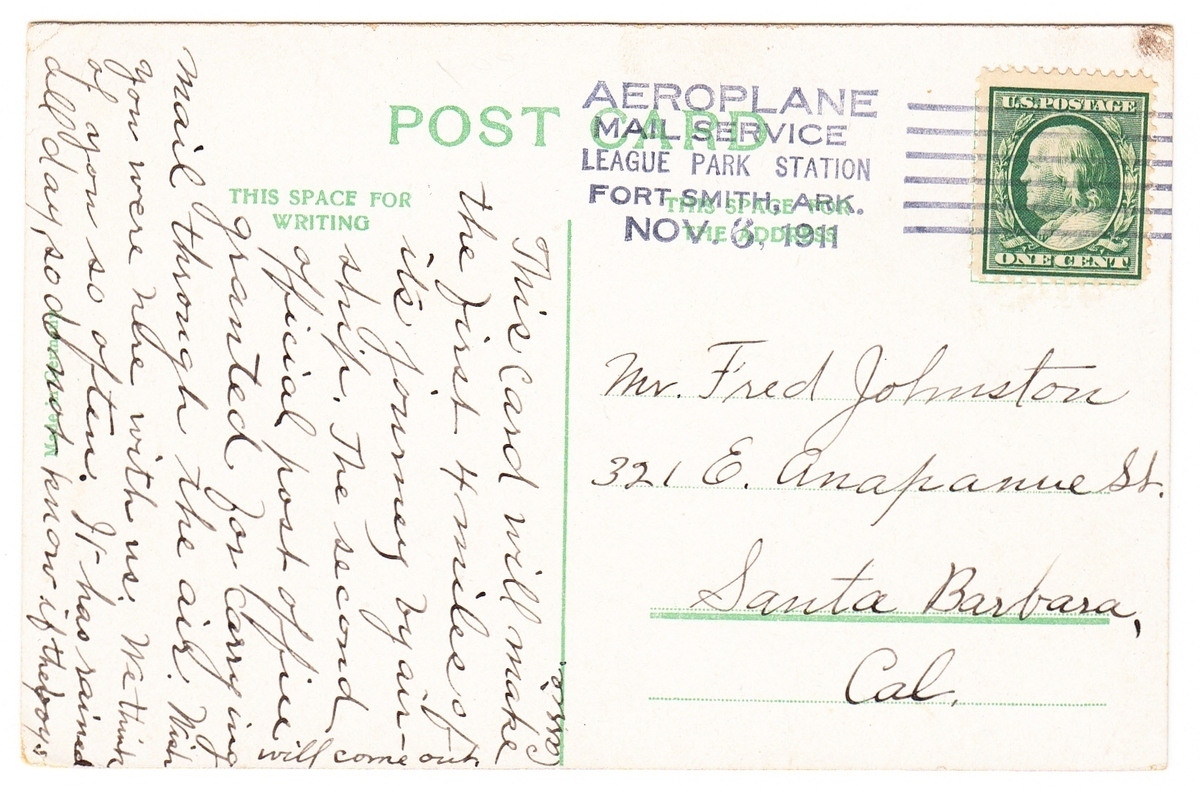 POST CARD
THIS SPACE FOR
WRITING
THIS SPACE FOR
THE ADDRESS
AEROPLANE
MAIL SERVICE
LEAGUE PARK STATION
FORT SMITH, ARK.
NOV. 6, 1911
U.S. POSTAGE
ONE CENT
This Card will make
the first 4 miles of
its journey by air-
ship. The second
official post office
granted for carrying
mail through the air. Wish
you were here with us. We think
of you so often. It has rained
all day, so do not know if the boys
will come out
Mr. Fred Johnston
321 E. Anapanue St.
Santa Barbara,
Cal.